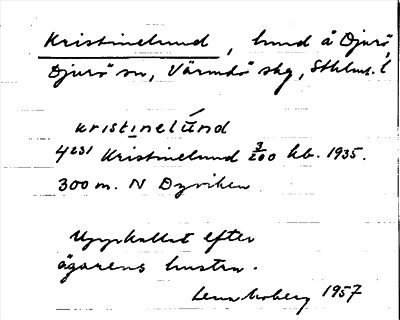 Kristinelund, lund å Djurö,
Djurö sn, Värmdö skg, Sthlms. l
kristinelúnd
4231 Kristinelund 3/200 hb. 1935.
300 m. N Dyviken
Uppkallat efter
ägarens hustru.
Lena Moberg 1957